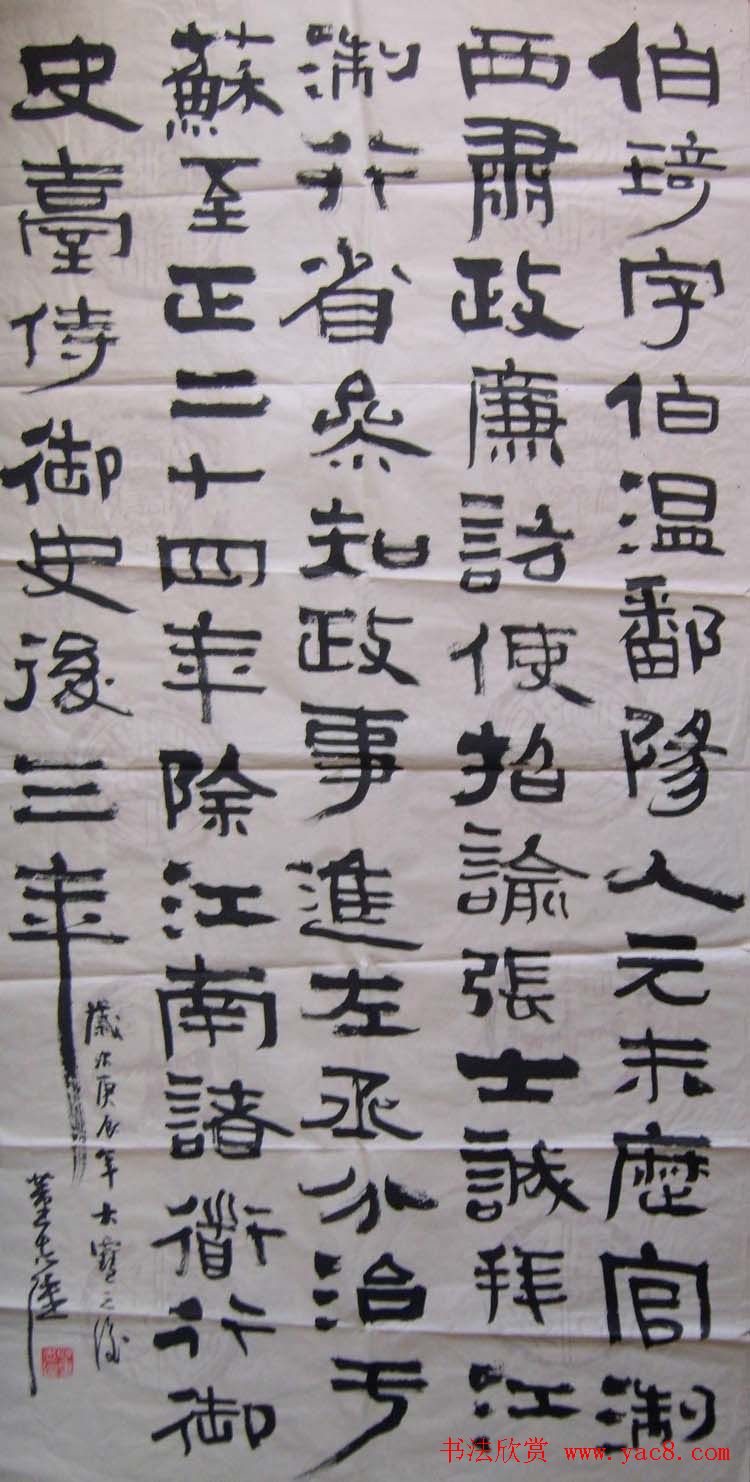 伯琦字伯温鄱陽人元末歷官淛
西肅政廉訪使招諭張士誠拜江
淛行省參知政事進左丞分治于
蘇至正二十四年除江南諸衜行御
史臺侍御史後三年
歲次庚辰年大之後
书法欣赏 www.yac8.com